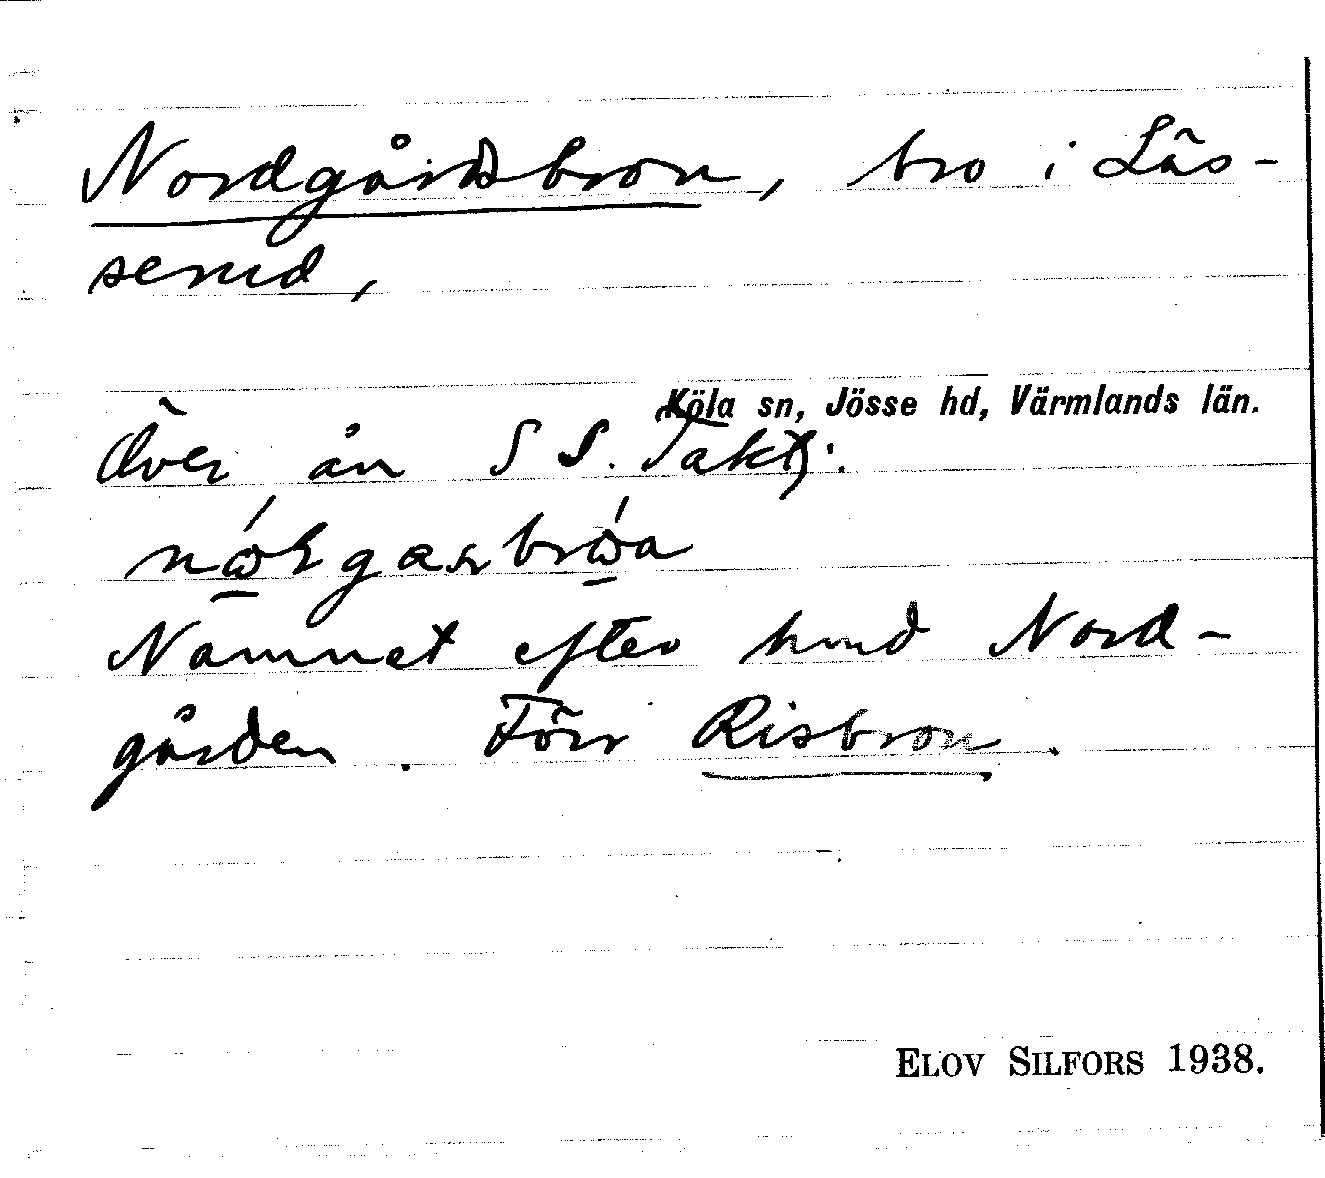 Nordgårdsbron, bro i Läs-
serud,
Köla sn, Jösse hd, Värmlands län.
Över ån S S. Takt;
Namnet efter hmd Nord-
gården. Förr Risbron.
ELOV SILFORS 1938.